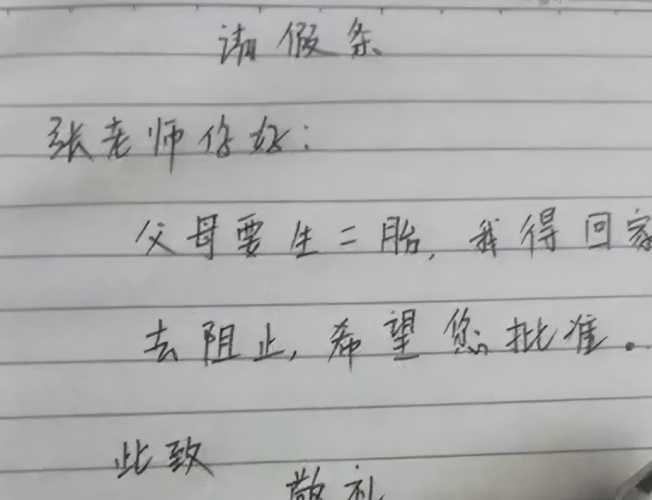 请假条
张老师你好：
父母要生二胎，我得回家
去阻止，希望您批准。
此致
敬礼